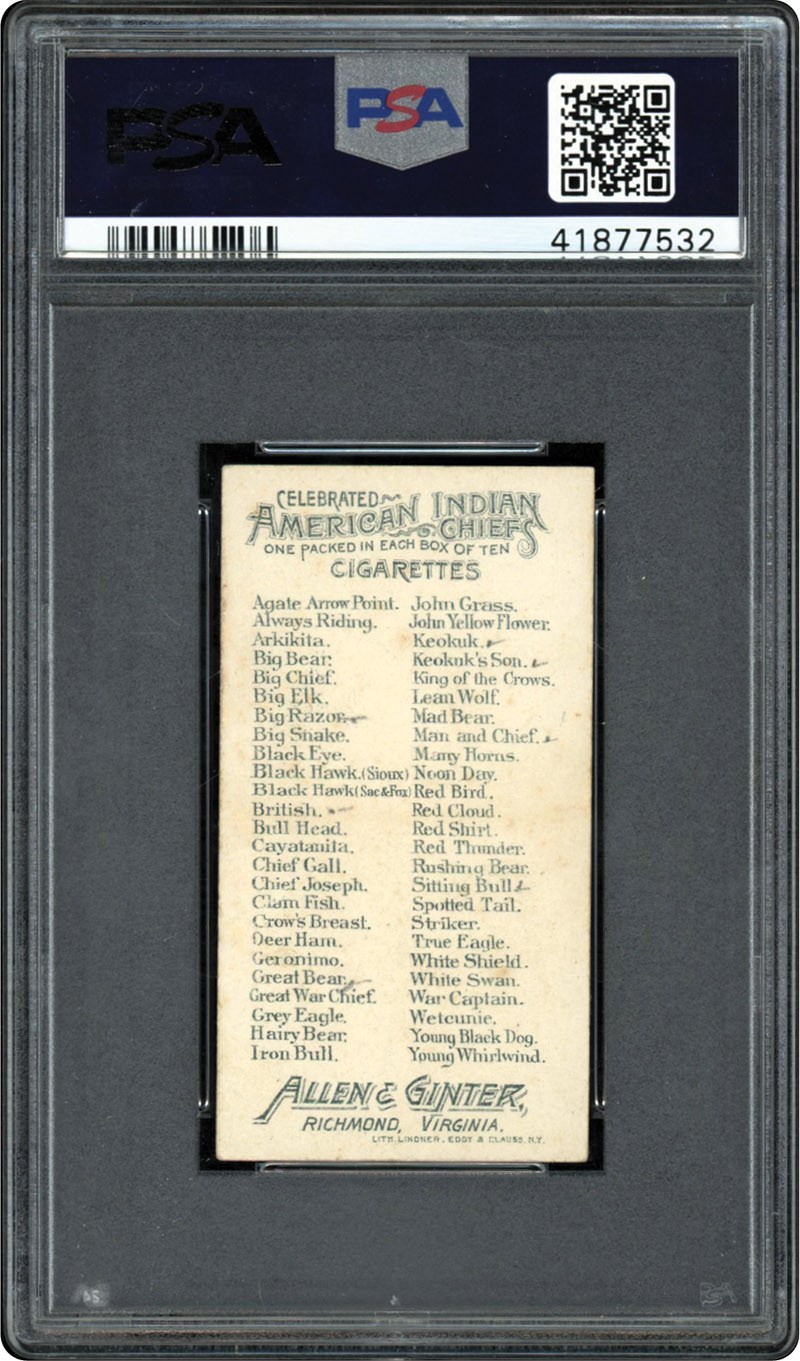 PSA
PSA
41877532
CELEBRATED
AMERICAN INDIAN CHIEFS
ONE PACKED IN EACH BOX OF TEN
CIGARETTES
Agate Arrow Point. John Grass.
Always Riding. John Yellow Flower.
Arkikita. Keokuk.
Big Bear. Keokuk's Son.
Big Chief. King of the Crows.
Big Elk. Lean Wolf.
Big Razor. Mad Bear.
Big Snake. Man and Chief.
Black Eye. Many Horns.
Black Hawk.(Sioux) Noon Day.
Black Hawk(Sac&Fox) Red Bird.
British. Red Cloud.
Bull Head. Red Shirt.
Cayatanita. Red Thunder.
Chief Gall. Rushing Bear.
Chief Joseph. Sitting Bull
Clam Fish. Spotted Tail.
Crow's Breast. Striker.
Deer Ham. True Eagle.
Geronimo. White Shield.
Great Bear. White Swan.
Great War Chief. War Captain.
Grey Eagle. Wetcunie.
Hairy Bear. Young Black Dog.
Iron Bull. Young Whirlwind.
ALLEN & GINTER,
RICHMOND, VIRGINIA.
LITH. LINDNER, EDDY & CLAUSS. N.Y.
PSA